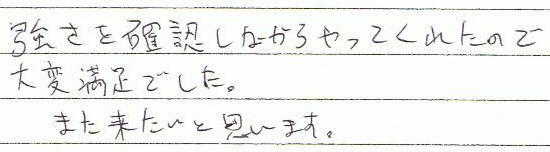 強さを確認しながらやってくれたので
大変満足でした。
また来たいと思います。